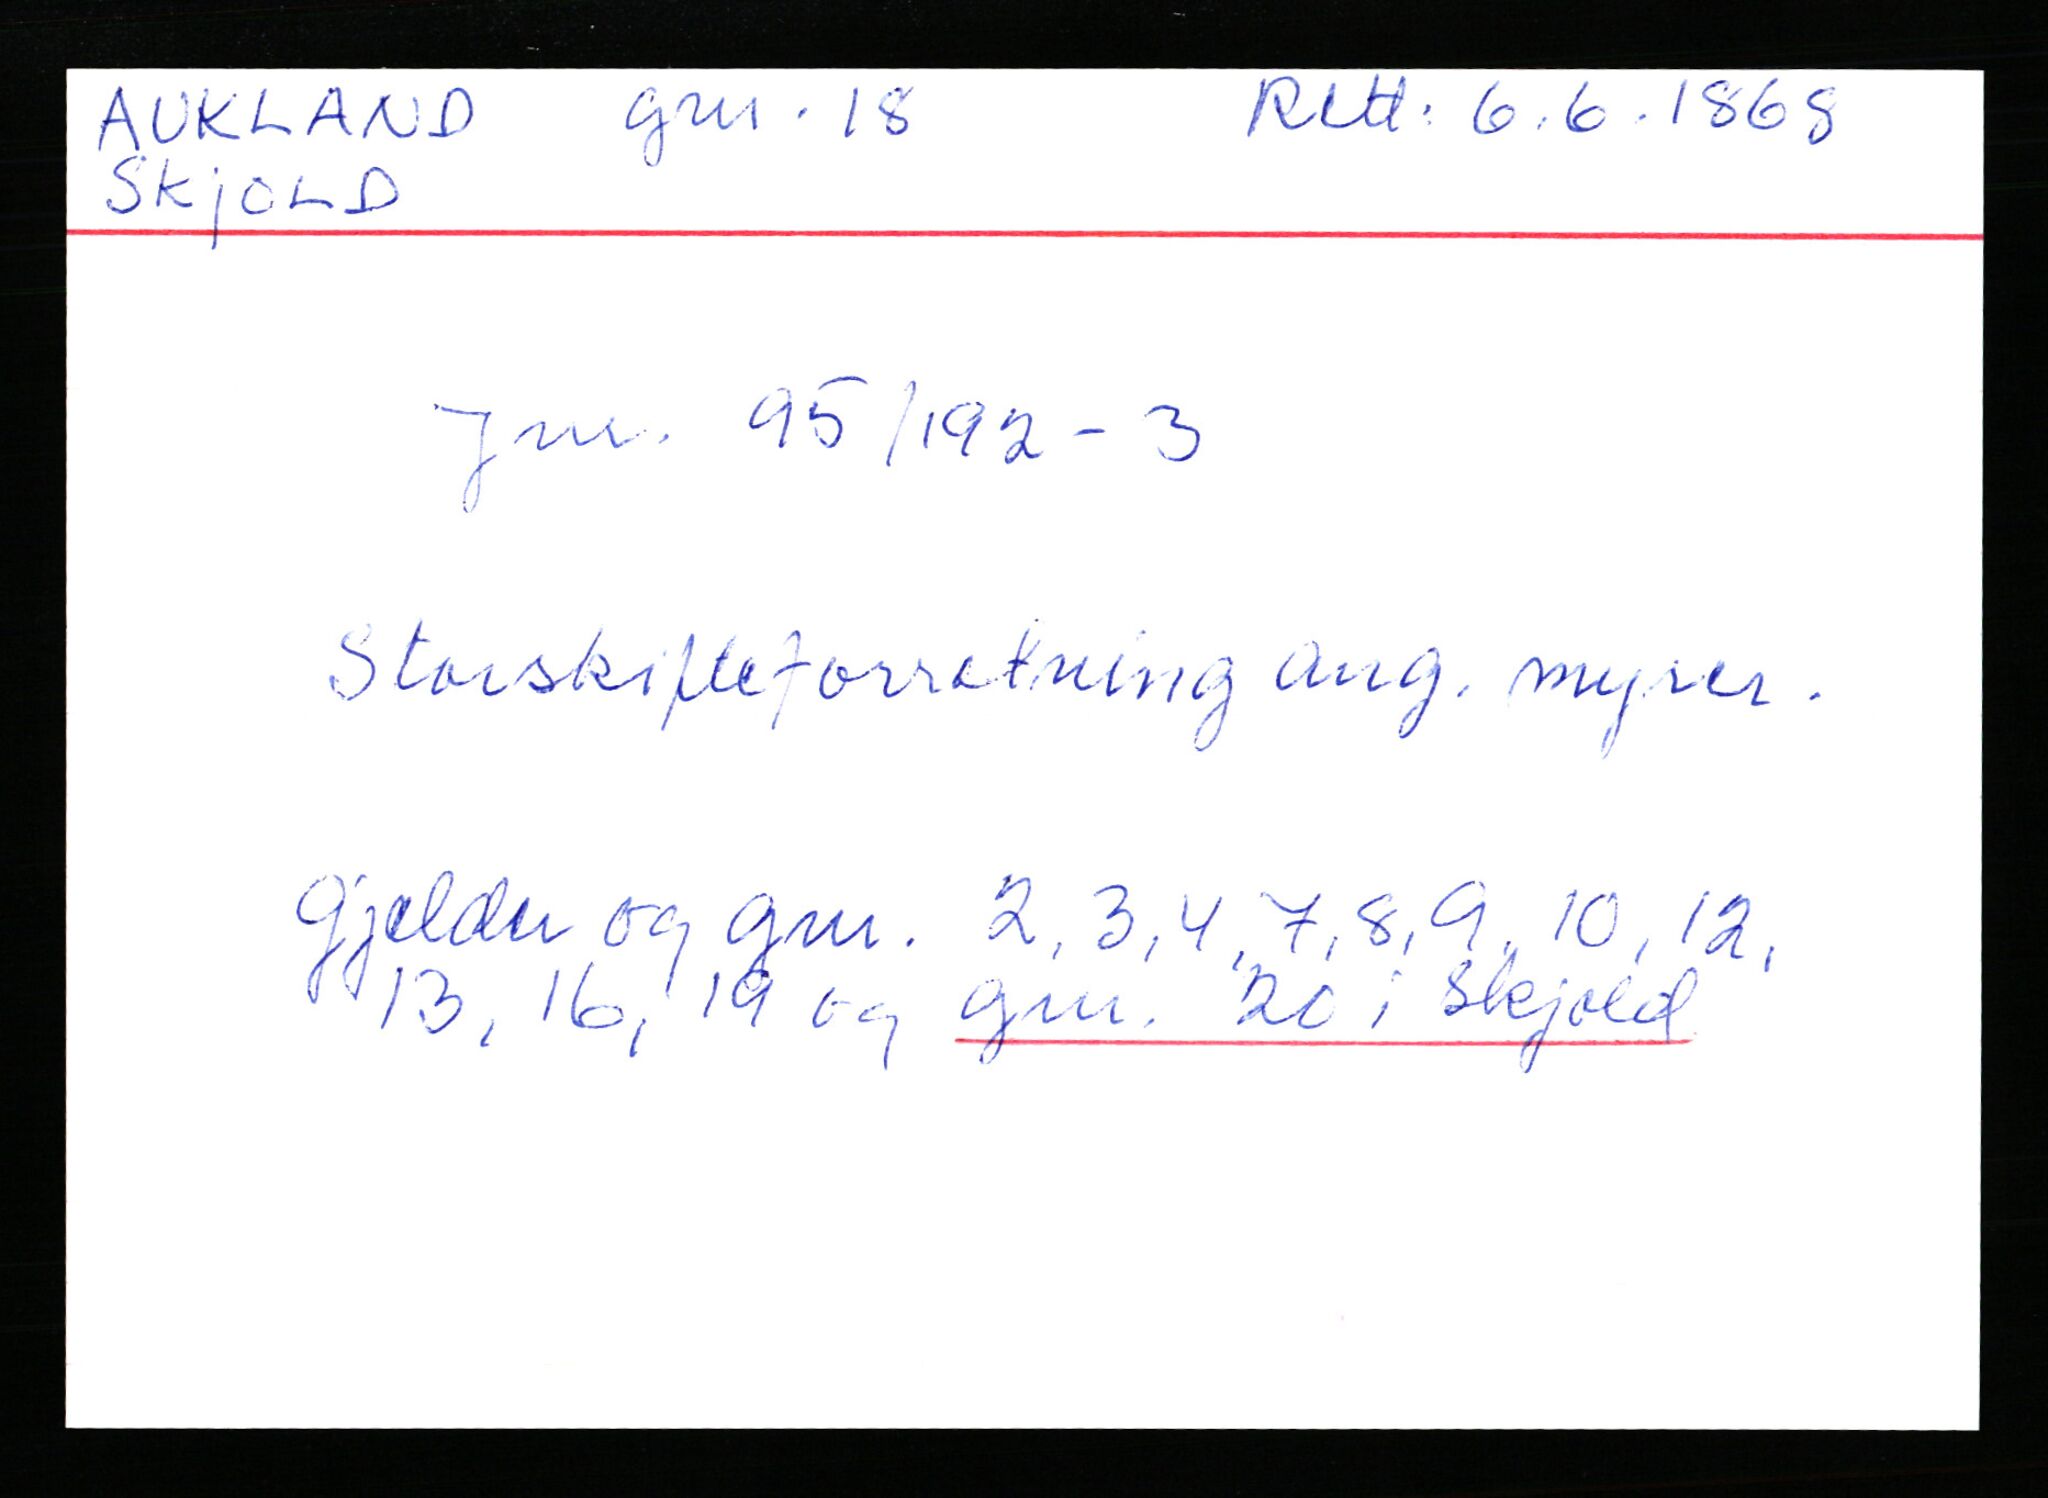 AUKLAND gnr. 18 Rett: 6.6.1868
SKjOLD
Jnr. 95/192-3
Storskifteforretning ang. myrer.
Gjelder og gnr. 2, 3, 4, 7, 8, 9, 10, 12,
13, 16, 19 og gnr. 20 i Skjold